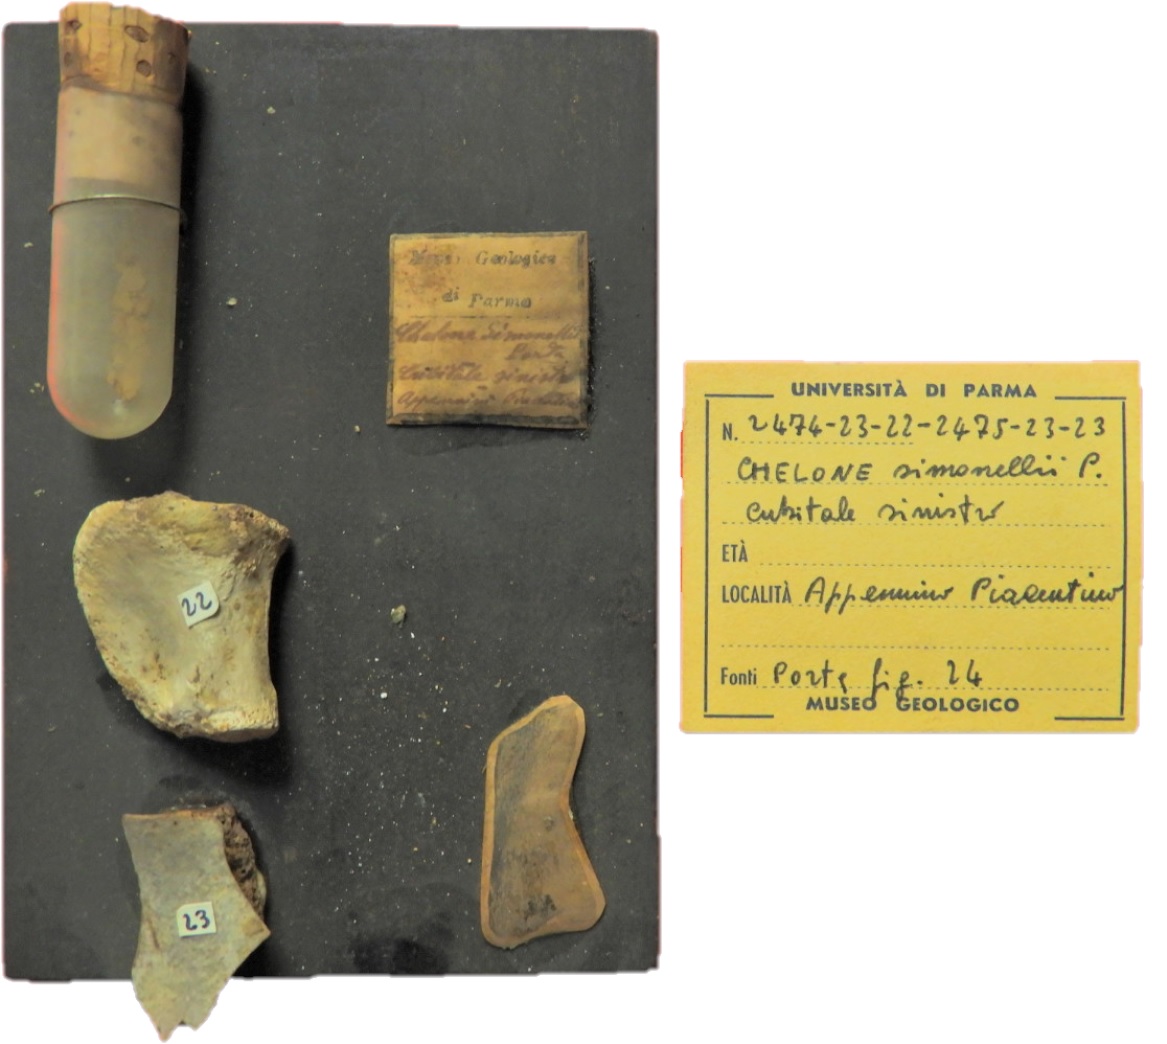 Geologico
di Parma
Chelone Simonellii
Cubitale sinistr
22
23
UNIVERSITÀ DI PARMA
N. 2474-23-22-2475-23-23
CHELONE simonellii P.
cubitale sinistro
ETÀ
LOCALITÀ Appennino Piacentino
Fonti Porta fig. 24
MUSEO GEOLOGICO